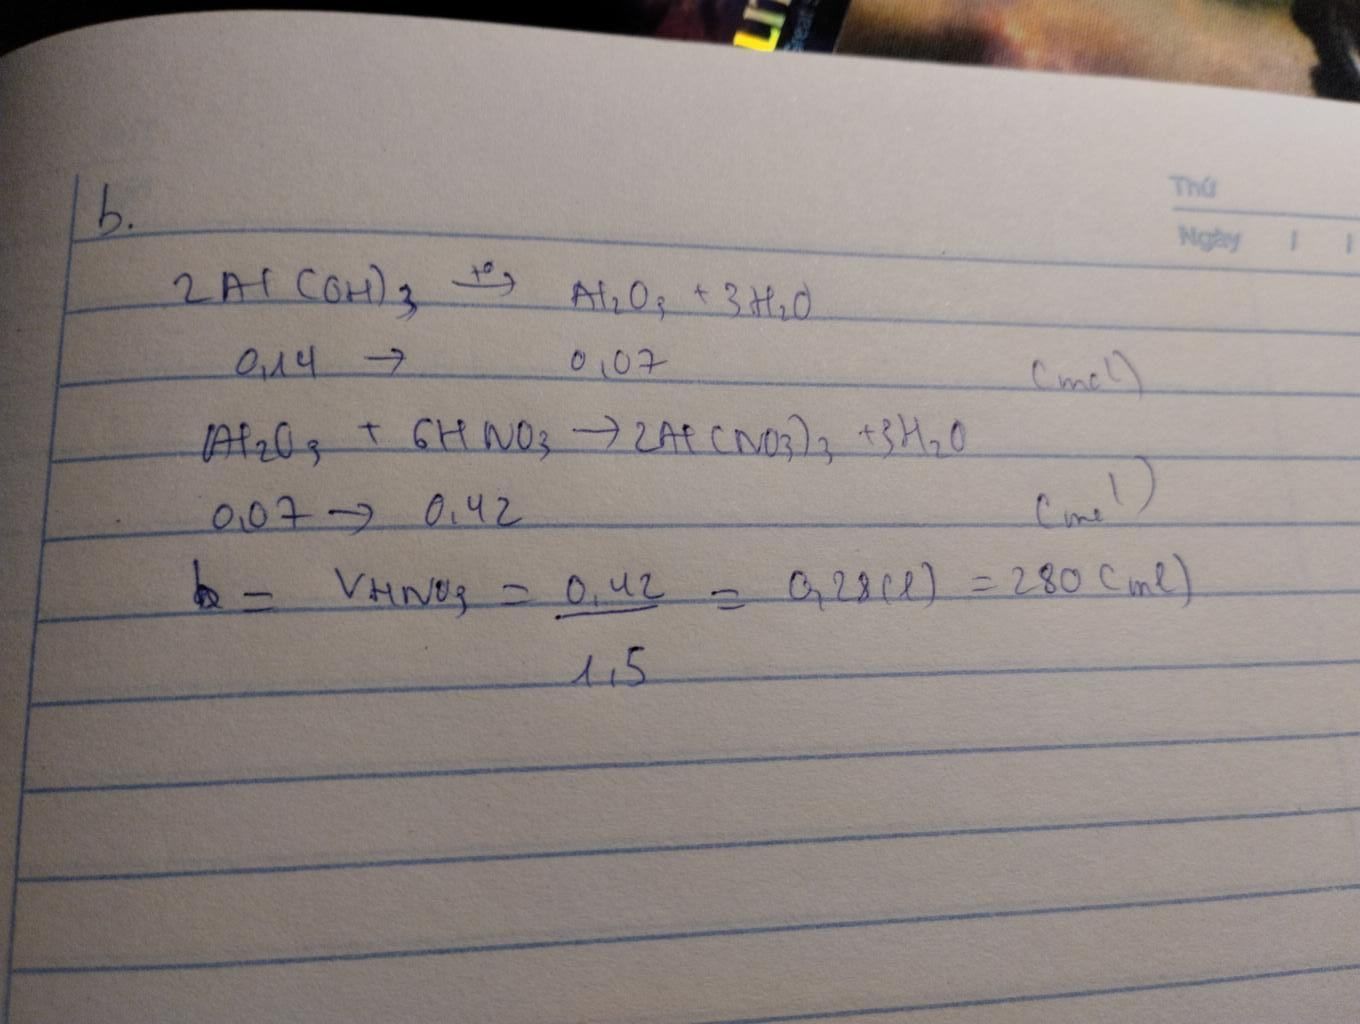 Thứ
Ngày
b.
2Al(OH)3 t° → Al2O3 + 3H2O
0,14 → 0,07 (mol)
Al2O3 + 6HNO3 → 2Al(NO3)3 + 3H2O
0,07 → 0,42 (mol)
b = VHNO3 = 0,42 / 1,5 = 0,28(l) = 280(ml)